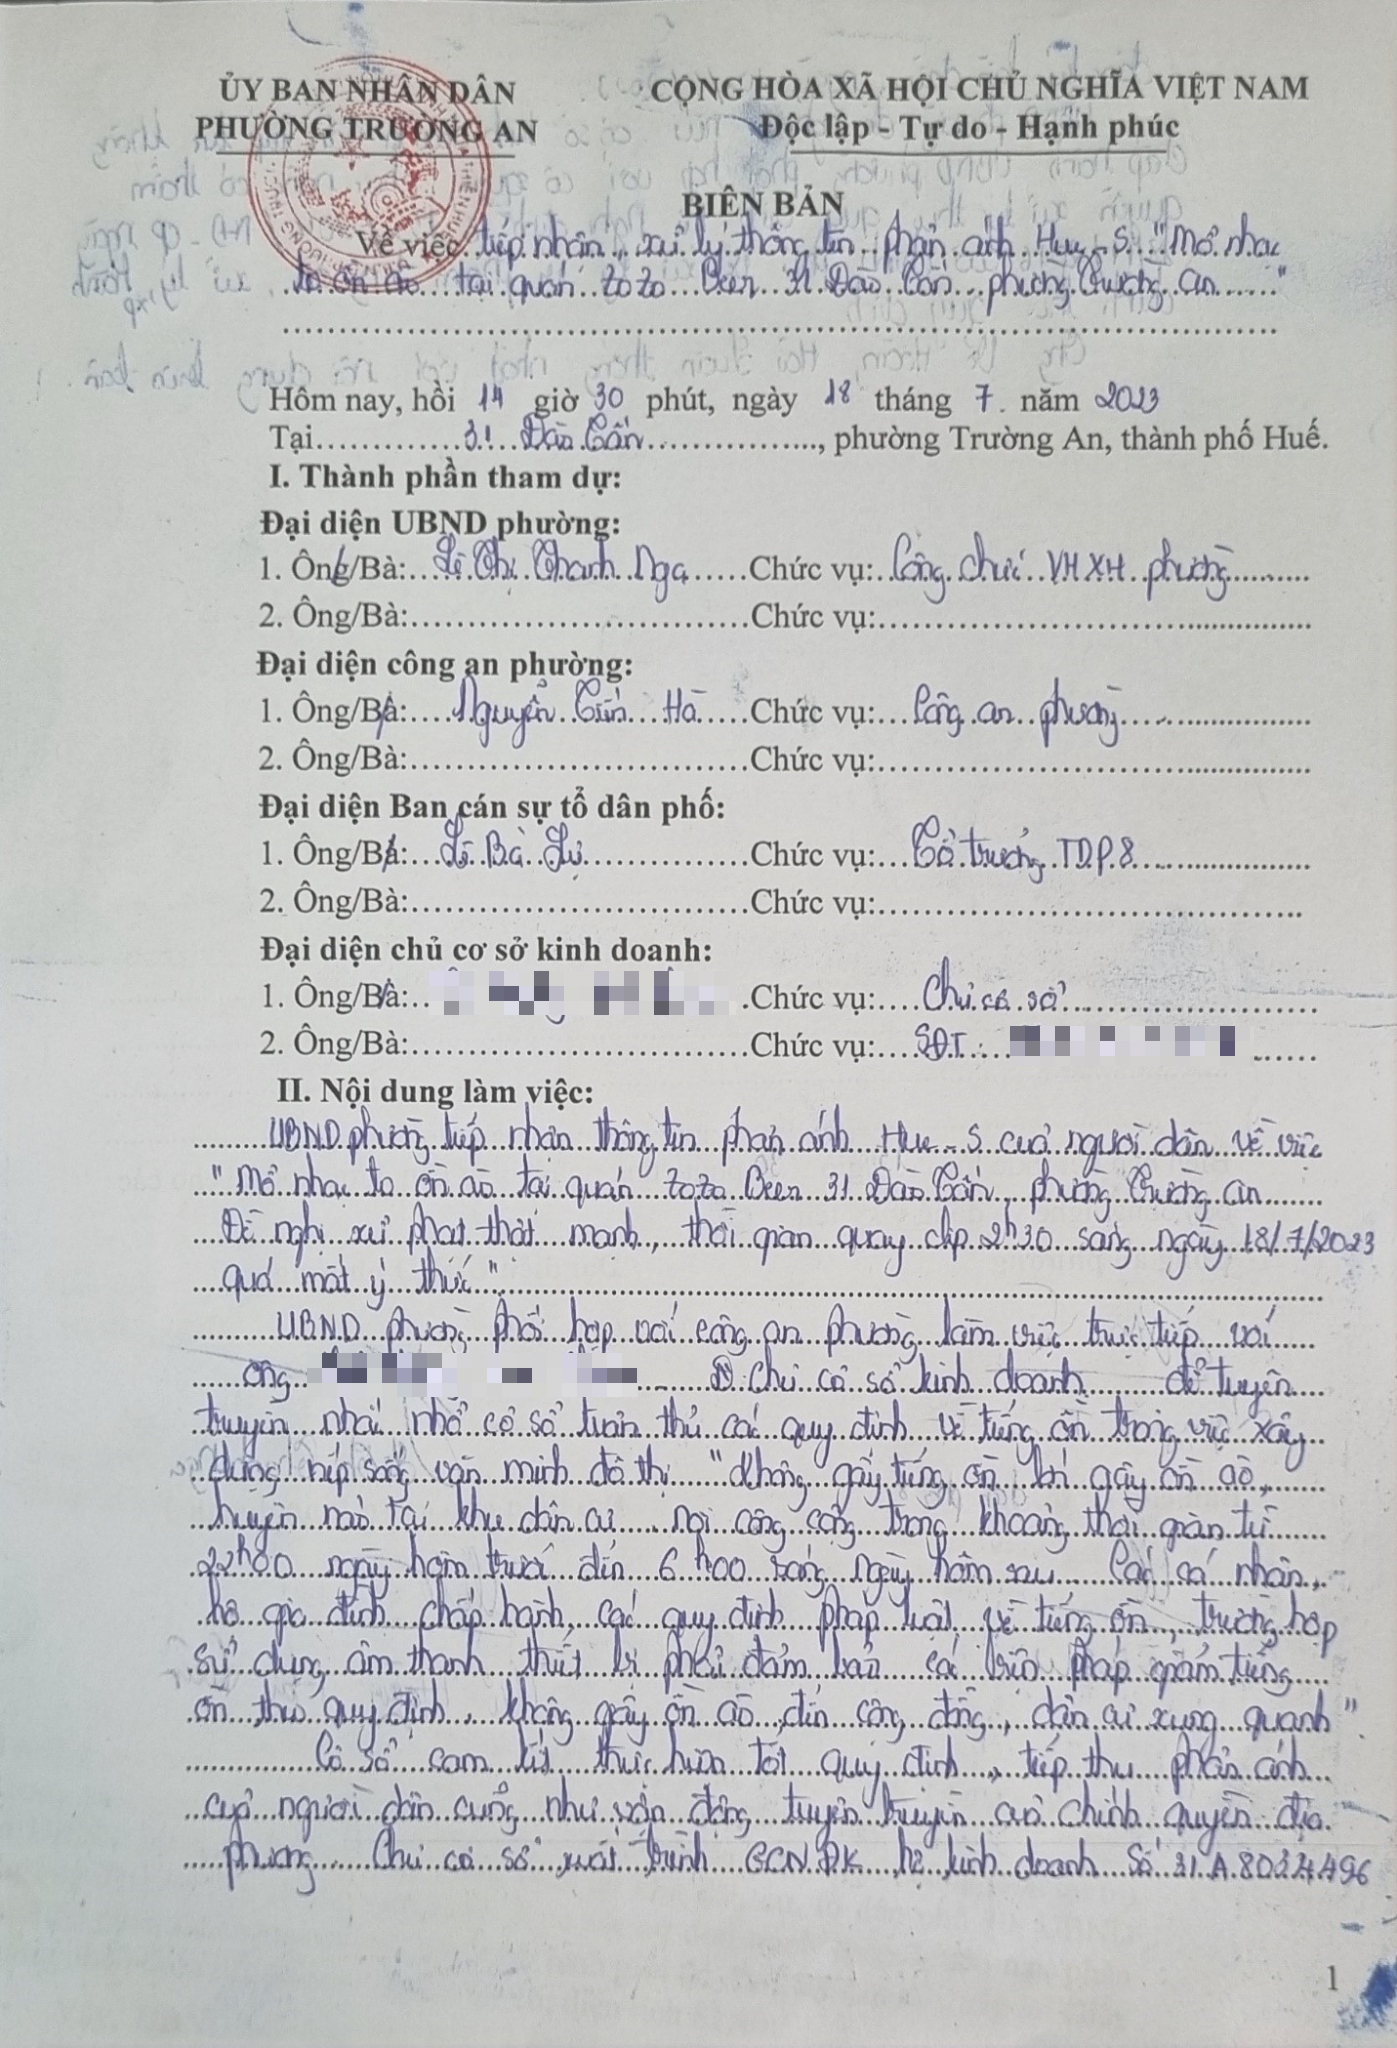 ỦY BAN NHÂN DÂN
PHƯỜNG TRƯỜNG AN
CỘNG HÒA XÃ HỘI CHỦ NGHĨA VIỆT NAM
Độc lập - Tự do - Hạnh phúc
BIÊN BẢN
Về việc tiếp nhận, xử lý thông tin phản ánh Hue-S "Mở nhạc
to ồn ào tại quán ZoZo Beer 31 Đào Tấn phường Trường An"
Hôm nay, hồi 14 giờ 30 phút, ngày 18 tháng 7 năm 2023
Tại 31 Đào Tấn, phường Trường An, thành phố Huế.
I. Thành phần tham dự:
Đại diện UBND phường:
1. Ông/Bà: Lê Thị Thanh Nga Chức vụ: Công chức VHXH phường
2. Ông/Bà: Chức vụ:
Đại diện công an phường:
1. Ông/Bà: Nguyễn Tiến Hà Chức vụ: Công an phường
2. Ông/Bà: Chức vụ:
Đại diện Ban cán sự tổ dân phố:
1. Ông/Bà: Lê Bá Chức vụ: Tổ trưởng TDP 8
2. Ông/Bà: Chức vụ:
Đại diện chủ cơ sở kinh doanh:
1. Ông/Bà: Chức vụ: Chủ cơ sở
2. Ông/Bà: Chức vụ: SĐT:
II. Nội dung làm việc:
UBND phường tiếp nhận thông tin phản ánh Hue-S của người dân về việc
"Mở nhạc to ồn ào tại quán ZoZo Beer 31 Đào Tấn, phường Trường An
Đề nghị xử phạt thật mạnh, thời gian quay clip 2h30 sáng ngày 18/7/2023
quá mất ý thức"
UBND phường phối hợp với công an phường làm việc trực tiếp với
ông Chủ cơ sở kinh doanh để tuyên
truyền nhắc nhở cơ sở tuân thủ các quy định về tiếng ồn trong việc xây
dựng nếp sống văn minh đô thị "Không gây tiếng ồn, gây ồn ào,
huyên náo tại khu dân cư, nơi công cộng trong khoảng thời gian từ
22h00 ngày hôm trước đến 6h00 sáng ngày hôm sau. Các cá nhân,
hộ gia đình chấp hành các quy định pháp luật về tiếng ồn, trường hợp
sử dụng âm thanh thiết bị phải đảm bảo các biện pháp giảm tiếng
ồn theo quy định, không gây ồn ào đến cộng đồng, dân cư xung quanh".
Cơ sở cam kết thực hiện tốt quy định, tiếp thu phản ánh
của người dân cũng như vận động tuyên truyền của chính quyền địa
phương. Chủ cơ sở xuất trình GCN ĐK hộ kinh doanh Số 31A8034496
1